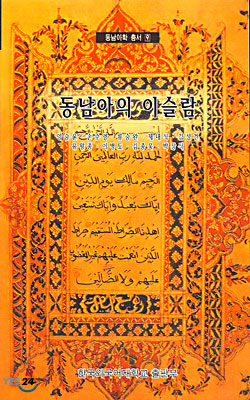 동남아학 총서 9
동남아의 이슬람
بسم الله الرحمن الرحيم
الحمد لله رب العالمين الرحمن
الرحيم مالك يوم الدين
إياك نعبد وإياك نستعين
اهدنا الصراط المستقيم صراط
الذين أنعمت عليهم غير المغضوب
عليهم ولا الضالين
한국외국어대학교 출판부
YES24